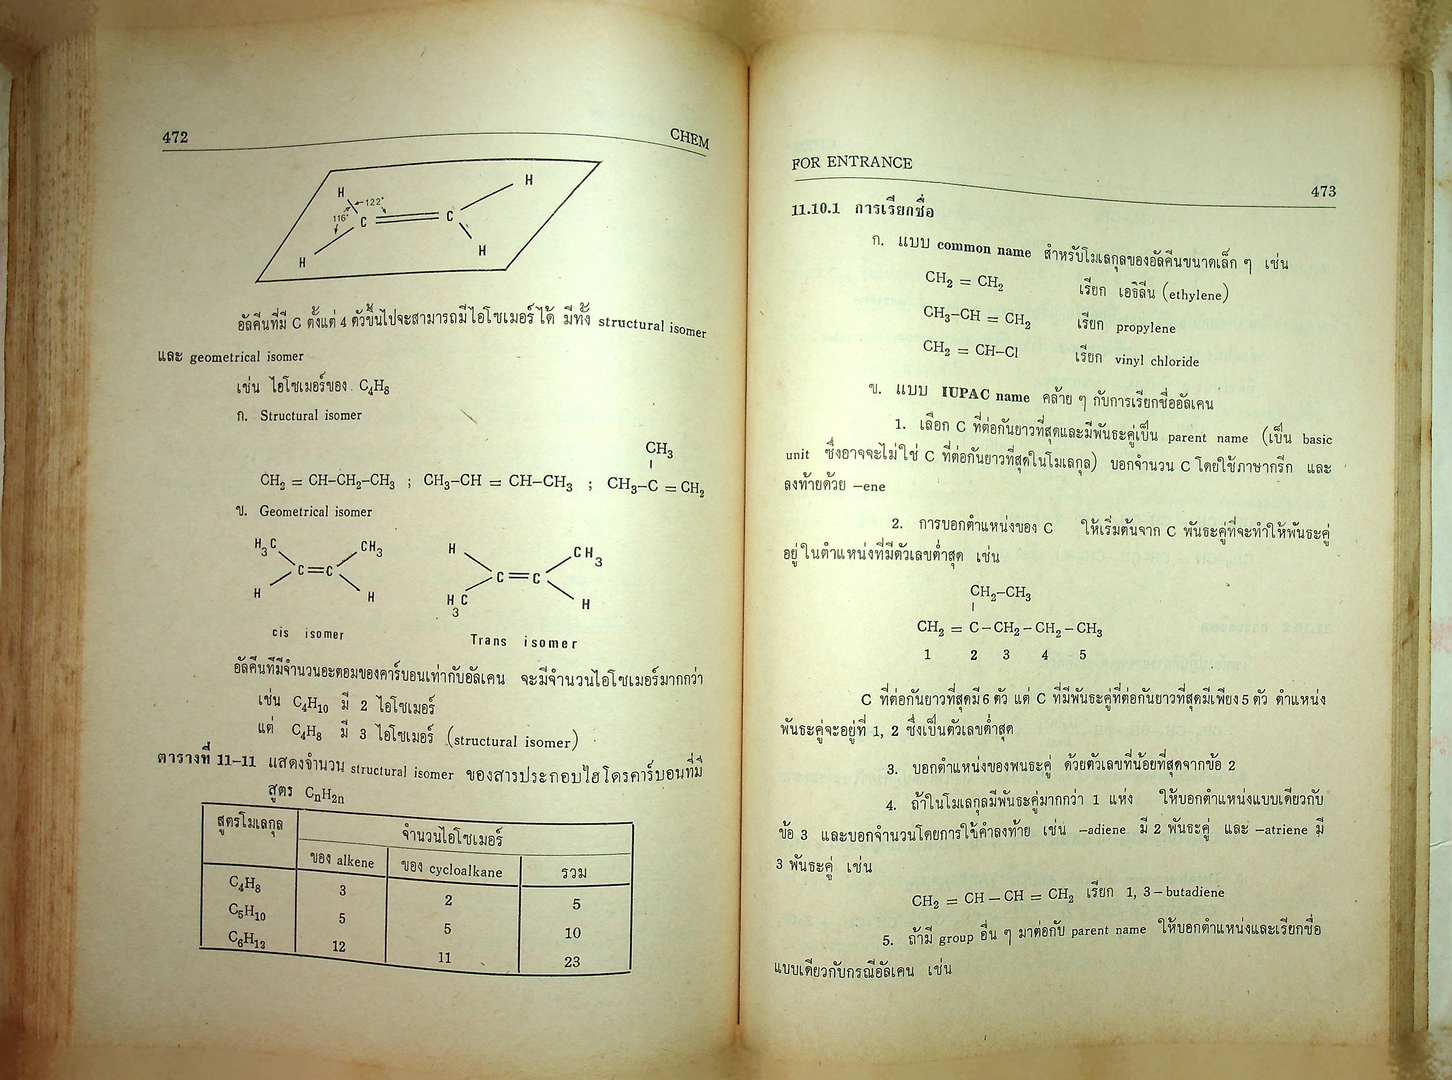 472 CHEM
H H
122°
116° C = C
H H
อัลคีนที่มี C ตั้งแต่ 4 ตัวขึ้นไปจะสามารถมีไอโซเมอร์ได้ มีทั้ง structural isomer
และ geometrical isomer
เช่น ไอโซเมอร์ของ C₄H₈
ก. Structural isomer
CH₃
CH₂ = CH–CH₂–CH₃ ; CH₃–CH = CH–CH₃ ; CH₃–C = CH₂
ข. Geometrical isomer
H₃C CH₃ H CH₃
C=C C=C
H H H₃C H
cis isomer Trans isomer
อัลคีนที่มีจำนวนอะตอมของคาร์บอนเท่ากับอัลเคน จะมีจำนวนไอโซเมอร์มากกว่า
เช่น C₄H₁₀ มี 2 ไอโซเมอร์
แต่ C₄H₈ มี 3 ไอโซเมอร์ (structural isomer)
ตารางที่ 11–11 แสดงจำนวน structural isomer ของสารประกอบไฮโดรคาร์บอนที่มี
สูตร CₙH₂ₙ
สูตรโมเลกุล จำนวนไอโซเมอร์
ของ alkene ของ cycloalkane รวม
C₄H₈ 3 2 5
C₅H₁₀ 5 5 10
C₆H₁₂ 12 11 23
FOR ENTRANCE 473
11.10.1 การเรียกชื่อ
ก. แบบ common name สำหรับโมเลกุลของอัลคีนขนาดเล็ก ๆ เช่น
CH₂ = CH₂ เรียก เอธิลีน (ethylene)
CH₃–CH = CH₂ เรียก propylene
CH₂ = CH–Cl เรียก vinyl chloride
ข. แบบ IUPAC name คล้าย ๆ กับการเรียกชื่ออัลเคน
1. เลือก C ที่ต่อกันยาวที่สุดและมีพันธะคู่เป็น parent name (เป็น basic
unit ซึ่งอาจจะไม่ใช่ C ที่ต่อกันยาวที่สุดในโมเลกุล) บอกจำนวน C โดยใช้ภาษากรีก และ
ลงท้ายด้วย –ene
2. การบอกตำแหน่งของ C ให้เริ่มต้นจาก C พันธะคู่ที่จะทำให้พันธะคู่
อยู่ในตำแหน่งที่มีตัวเลขต่ำสุด เช่น
CH₂–CH₃
CH₂ = C – CH₂ – CH₂ – CH₃
1 2 3 4 5
C ที่ต่อกันยาวที่สุดมี 6 ตัว แต่ C ที่มีพันธะคู่ที่ต่อกันยาวที่สุดมีเพียง 5 ตัว ตำแหน่ง
พันธะคู่จะอยู่ที่ 1, 2 ซึ่งเป็นตัวเลขต่ำสุด
3. บอกตำแหน่งของพนธะคู่ ด้วยตัวเลขที่น้อยที่สุดจากข้อ 2
4. ถ้าในโมเลกุลมีพันธะคู่มากกว่า 1 แห่ง ให้บอกตำแหน่งแบบเดียวกับ
ข้อ 3 และบอกจำนวนโดยการใช้คำลงท้าย เช่น –adiene มี 2 พันธะคู่ และ –atriene มี
3 พันธะคู่ เช่น
CH₂ = CH – CH = CH₂ เรียก 1, 3 – butadiene
5. ถ้ามี group อื่น ๆ มาต่อกับ parent name ให้บอกตำแหน่งและเรียกชื่อ
แบบเดียวกับกรณีอัลเคน เช่น